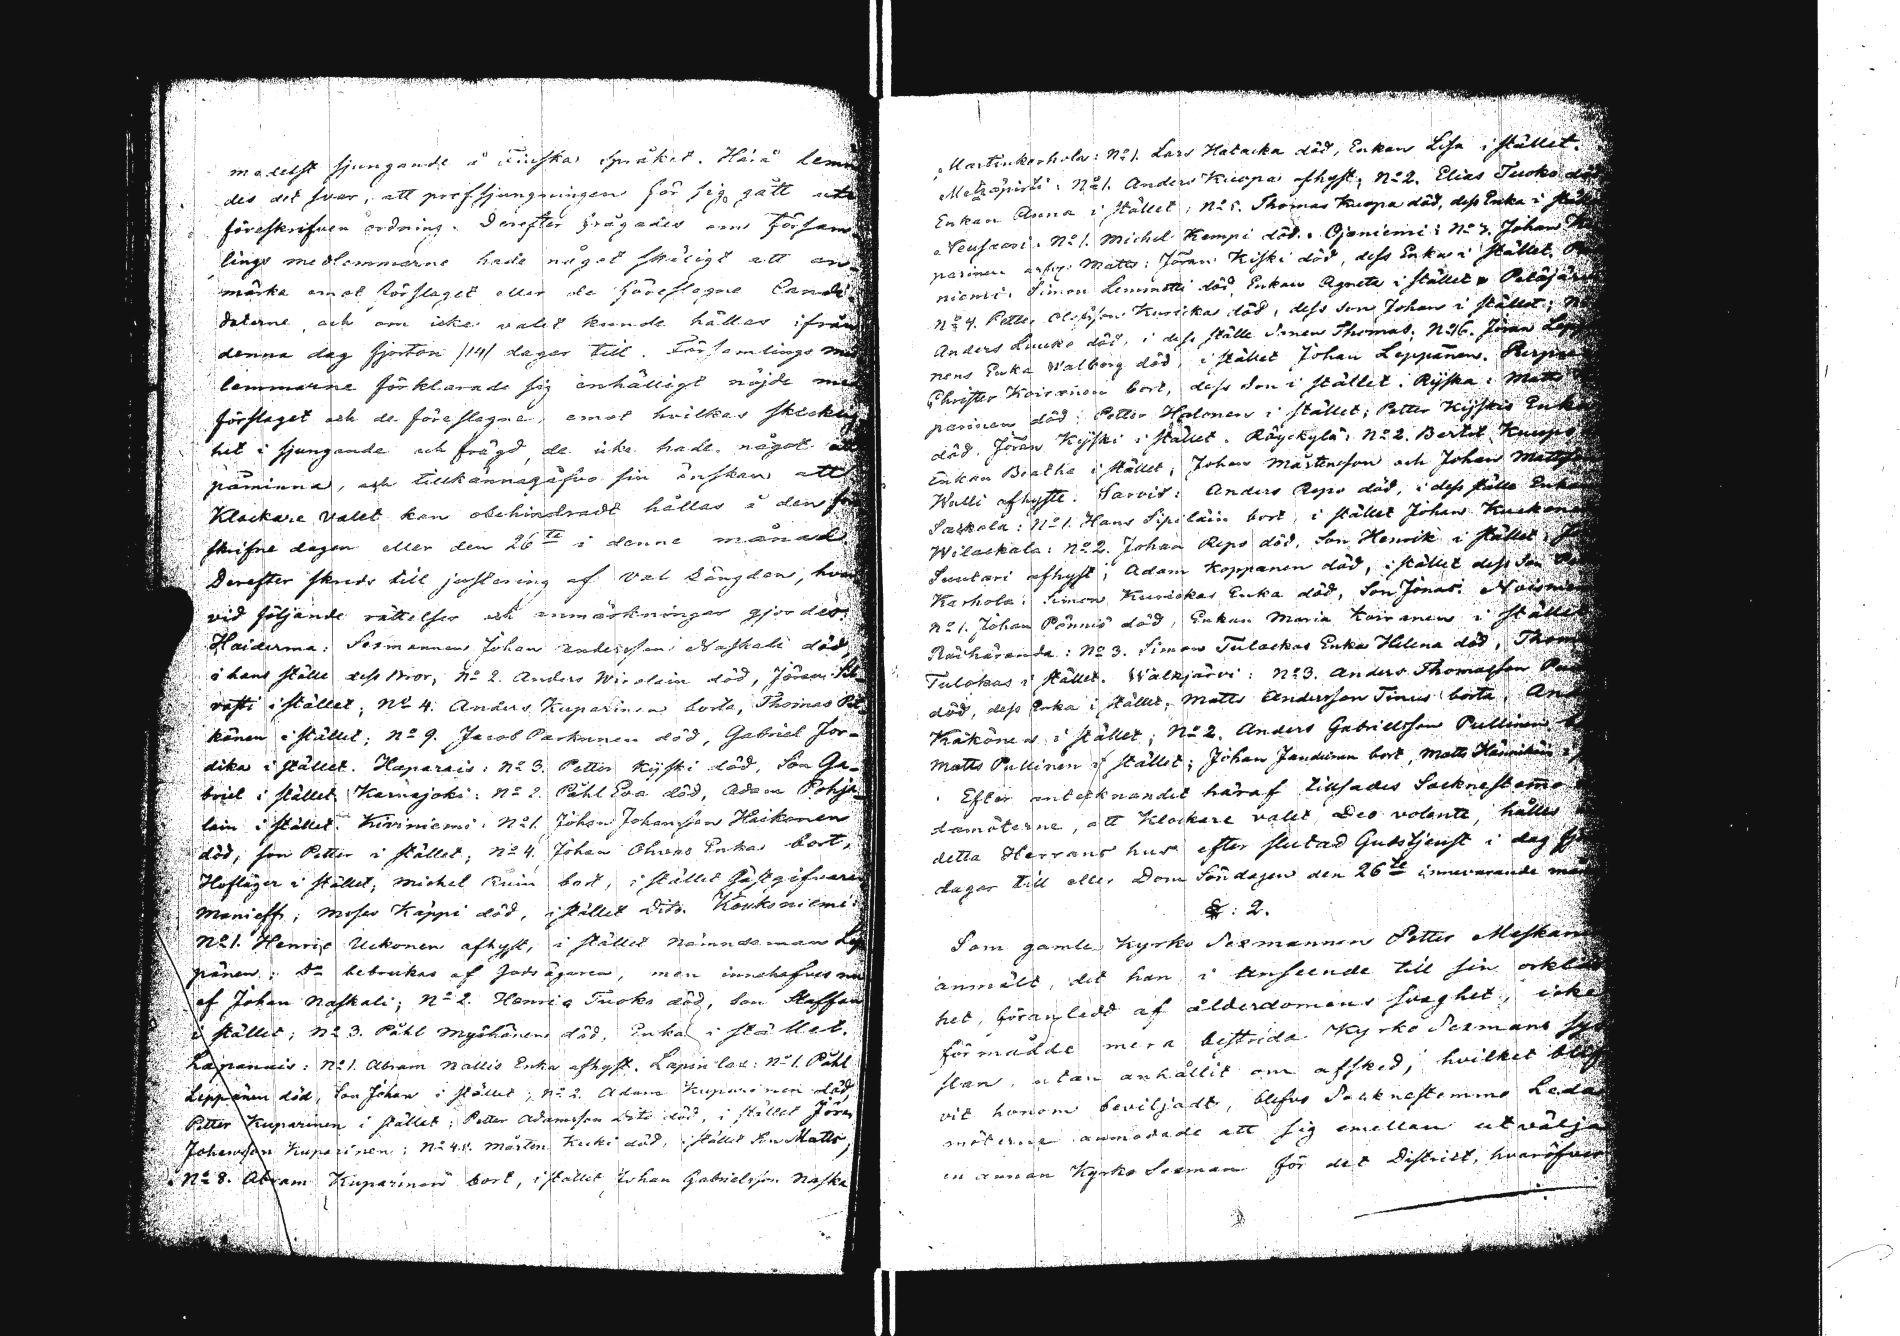 medelst sjungande å Finska språket. Härå lemn
des det svar, att profsjungningen för sig gått uti
föreskrifven ordning. Derefter frågades om Försam-
lings medlemmarne hade något skäligt att an-
märka emot förslaget eller de föreslagne Candi-
daterne, och om icke valet kunde hållas ifrån
denna dag fjorton /14/ dagar till. Församlings med
lemmarne förklarade sig enhälligt nöjde med
förslaget och de föreslagne, emot hvilkas skicklig
het i sjungande och frägd, de icke hade något att
påminna, och tillkännagåfvo sin önskan att
Klockare valet kan obehindradt hållas å den före
skrifne dagen eller den 26te i denne månad
Derefter skreds till justering af Val Längden, hvar
vid följande rättelser och anmärkningar gjordes:
Haiderma: Sexmannen Johan Andersson Naskali död,
i hans ställe dess Bror, No 2. Anders Wirolain död, Jöran
i stället; No 4. Anders Kuparinen borta, Thomas Pit-
känen i stället; No 9. Jacob Parkunen död, Gabriel Jor-
dika i stället. Haparais: No 3. Petter Kyski död, Son Ga-
briel i stället. Karnajoki: No 2. Påhl Eva död, Adam Pohja-
lain i stället. Kiviniemi: No 1. Johan Johansson Haikonen
död, son Petter i stället; No 4. Johan Ohvos Enka bort,
Hofläger i stället; Michel Ruin bort, i stället Gästgifvaren
Manieff; Moses Käppi död, i stället Dito. Kouksniemi:
No 1. Henric Uckonen afhyst, i stället Nämndeman Lep
pänen; Do bebrukas af Jordägaren, men innehafves nu
af Johan Naskali; No 2. Henric Tuoko död, Son Staffan
i stället; No 3. Påhl Myöhänen död, Enkan i stället.
Lapanais: No 1. Abram Nallis Enka afhyst. Lapinlax: No 1. Påhl
Leppänen död, Son Johan i stället; No 2. Adam Kuparinen död
Petter Kuparinen i stället; Petter Adamsson Dito död, i stället Jöran
Johansson Kuparinen; No 45. Mårten Kuki död, i stället Son Matts,
No 8. Abram Kuparinen bort, i stället Johan Gabrielsson Naska
Martinkorhola: No 1. Lars Hatacka död, Enkan Lisa i stället.
Metsäpirti: No 1. Anders Kuopa afhyst; No 2. Elias Tuoko död
Enkan Anna i stället; No 5. Thomas Kuopa död, dess Enka i stället
Neusaari: No 1. Michel Kempi död. Ojaniemi: No 7. Johan Ku
parinen Matts: Jöran Kiski död, dess Enka i stället.
niemi: Simon Lemmetti död, Enkan Agneta i stället Petäjärvi
No 4. Petter Olofsson Kurickas död, dess Son Johan i stället; No
Anders Lucko död, i dess ställe Sonen Thomas; No 16. Jöran Leppä
nens Enka Walborg död, i stället Johan Leppänen.
Christer Koiranen bort, dess Son i stället. Ryska: Matts
parinen död; Petter Halonen i stället; Petter Kyskis Enka
död. Jöran Kyski i stället. Röyckylä: No 2. Bertel Kuops
Enkan Beatha i stället; Johan Mårtensson och Johan Mattsson
Walli afhyste. Sarvis: Anders Repo död, i dess ställe Enkan
Saskala: No 1. Hans Sipiläin bort, i stället Johan Kuckonen
Wilackala: No 2. Johan Repo död, Son Henrik i stället;
Suutari afhyst; Adam Koppanen död, i stället dess Son
Karhola: Simon Kurickas Enka död, Son Jonas.
No 1. Johan Pönniö död, Enkan Maria Koiranen i stället
Räihäranda: No 3. Simon Tulockas Enka Helena död, Thomas
Tulokas i stället. Walkjärvi: No 3. Anders Thomasson
död, dess Enka i stället; Matts Andersson Tinus borta,
Käkönen i stället; No 2. Anders Gabrielsson Pullinen
Matts Pullinen i stället; Johan Janduinen bort, Matts Hännikäin i
Efter antecknandet häraf tillsades Socknestemmo
damöterne, att Klockare valet Deo volente, hålles i
detta Herrans hus efter slutad Gudstjenst i dag fjorton
dagar till eller Dom Söndagen den 26te innevarande mån
§: 2.
Som gamle Kyrko Sexmannen Petter Meskanen
anmält, det han i anseende till sin orklös
het, föranledd af ålderdomens svaghet, icke
förmådde mera bestrida Kyrko Sexmans sys
slan, utan anhållit om afsked, hvilket blef
vit honom beviljadt, blefvo Socknestemmo Leda
möterne anmodade att sig emellan utvälja
en annan Kyrko Sexman för det District, hvaröfver